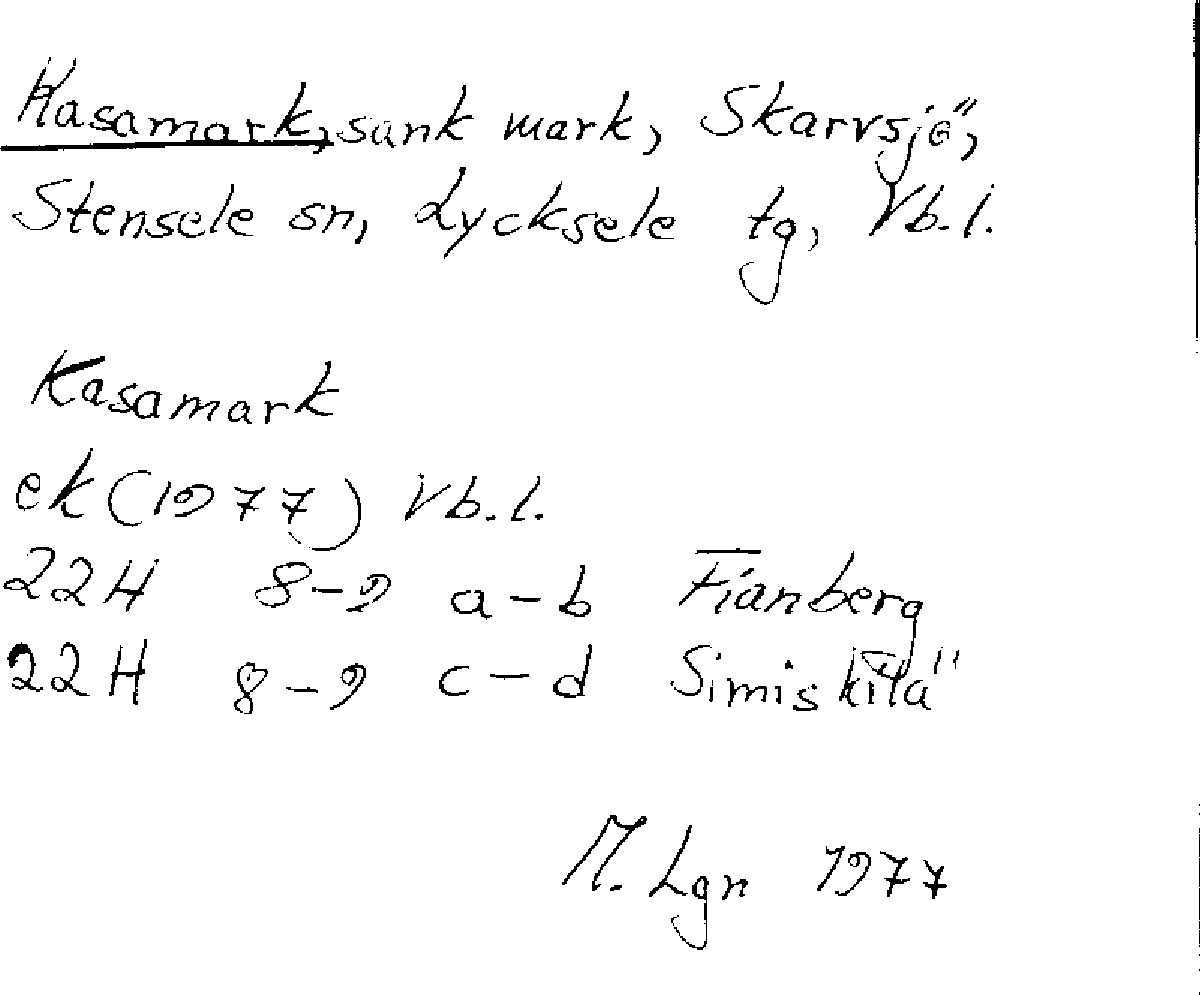 Kasamark, sank mark, Skarvsjö,
Stensele sn, Lycksele tg, Vb.l.
Kasamark
ek (1977) Vb.l.
22H 8-9 a-b Fianberg
22H 8-9 c-d Simiskilä
M. Lgn 1977